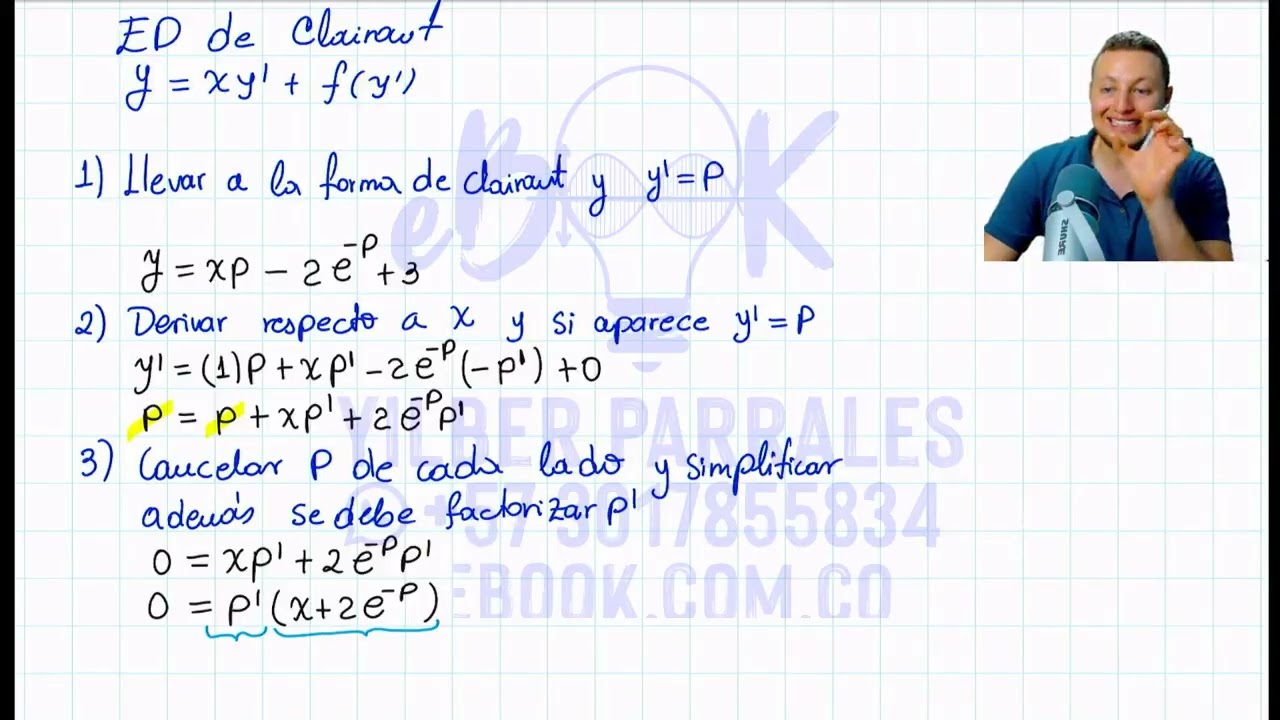 ED de Clairaut
y = xy' + f(y')
1) Llevar a la forma de clairaut y y' = P
y = xp - 2e^-P + 3
2) Derivar respecto a x y si aparece y' = P
y' = (1)P + xp' - 2e^-P (-p') + 0
P = P + xp' + 2e^-P p'
3) Cancelar P de cada lado y simplificar
además se debe factorizar p'
0 = xp' + 2e^-P p'
0 = p' (x + 2e^-P)
eBOOK
YILBER PARRALES
+57 3017855834
EBOOK.COM.CO
SHURE